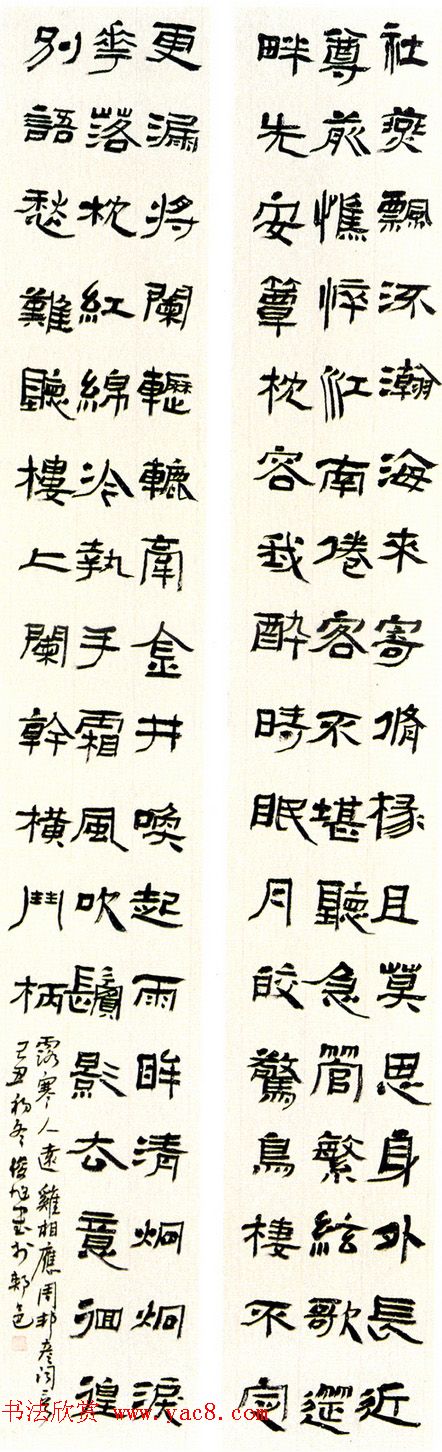 社燕飄流瀚海來寄脩椽且莫思身外長近
尊前憔悴江南倦客不堪聽急管繁絃歌筵
畔先安簟枕容我醉時眠月皎驚鳥棲不定
更漏將闌轣轆牽金井喚起兩眸清炯炯淚
華落枕紅綿冷執手霜風吹鬢影去意徊徨
別語愁難聽樓上闌幹橫鬥柄
露寒人遠雞相應周邦彥詞
己丑初冬書於
书法欣赏 www.yac8.com